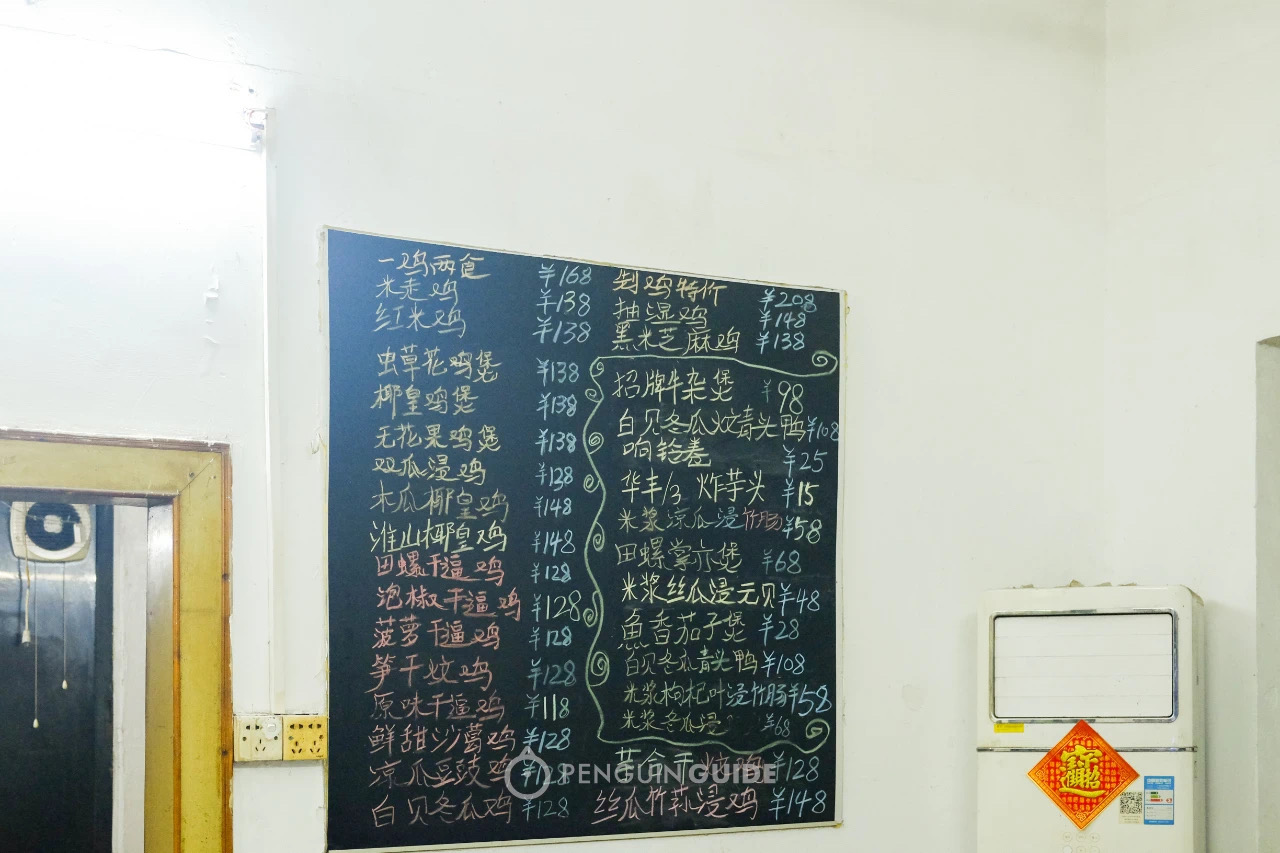 一鸡两食 ¥168
米走鸡 ¥138
红米鸡 ¥138
虫草花鸡煲 ¥138
椰皇鸡煲 ¥138
无花果鸡煲 ¥138
双瓜浸鸡 ¥138
木瓜椰皇鸡 ¥148
淮山椰皇鸡 ¥148
田螺干逼鸡 ¥128
泡椒干逼鸡 ¥128
菠萝干逼鸡 ¥128
笋干炆鸡 ¥128
原味干逼鸡 ¥118
鲜甜沙姜鸡 ¥128
凉瓜豆豉鸡 ¥128
白贝冬瓜鸡 ¥128
鸡特价 ¥208
抽湿鸡 ¥148
黑米芝麻鸡 ¥138
招牌牛杂煲 ¥98
白贝冬瓜炆青头鸭 ¥108
响铃卷 ¥25
华丰/3 炸芋头 ¥15
米浆凉瓜浸竹肠 ¥58
田螺掌亦煲 ¥68
米浆丝瓜浸元贝 ¥48
魚香茄子煲 ¥28
白贝冬瓜青头鸭 ¥108
米浆枸杞叶浸竹肠 ¥58
米浆冬瓜浸 ¥68
鸡 ¥128
丝瓜竹荪浸鸡 ¥148
PENGUIN GUIDE
招财进宝